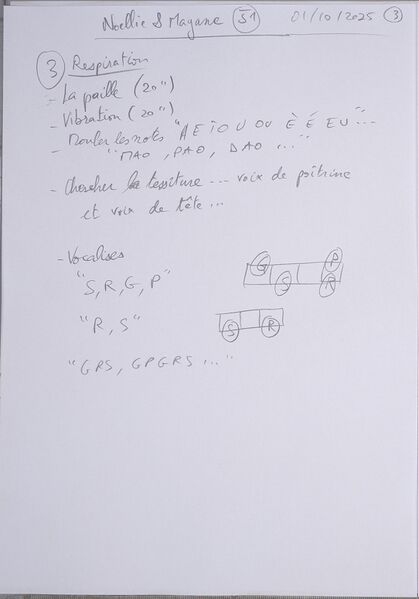 Noellie & Mayane S1 01/10/2025 3
3 Respiration
- La paille (20")
- Vibration (20")
- Monter les notes "A E I O U OU È É EU"...
"MAO, PAO, DAO ..."
- Chercher la tessiture ... voix de poitrine
et voix de tête ...
- Vocalises
"S, R, G, P"
G P
S R
"R, S"
S R
"GRS, GPGRS ..."